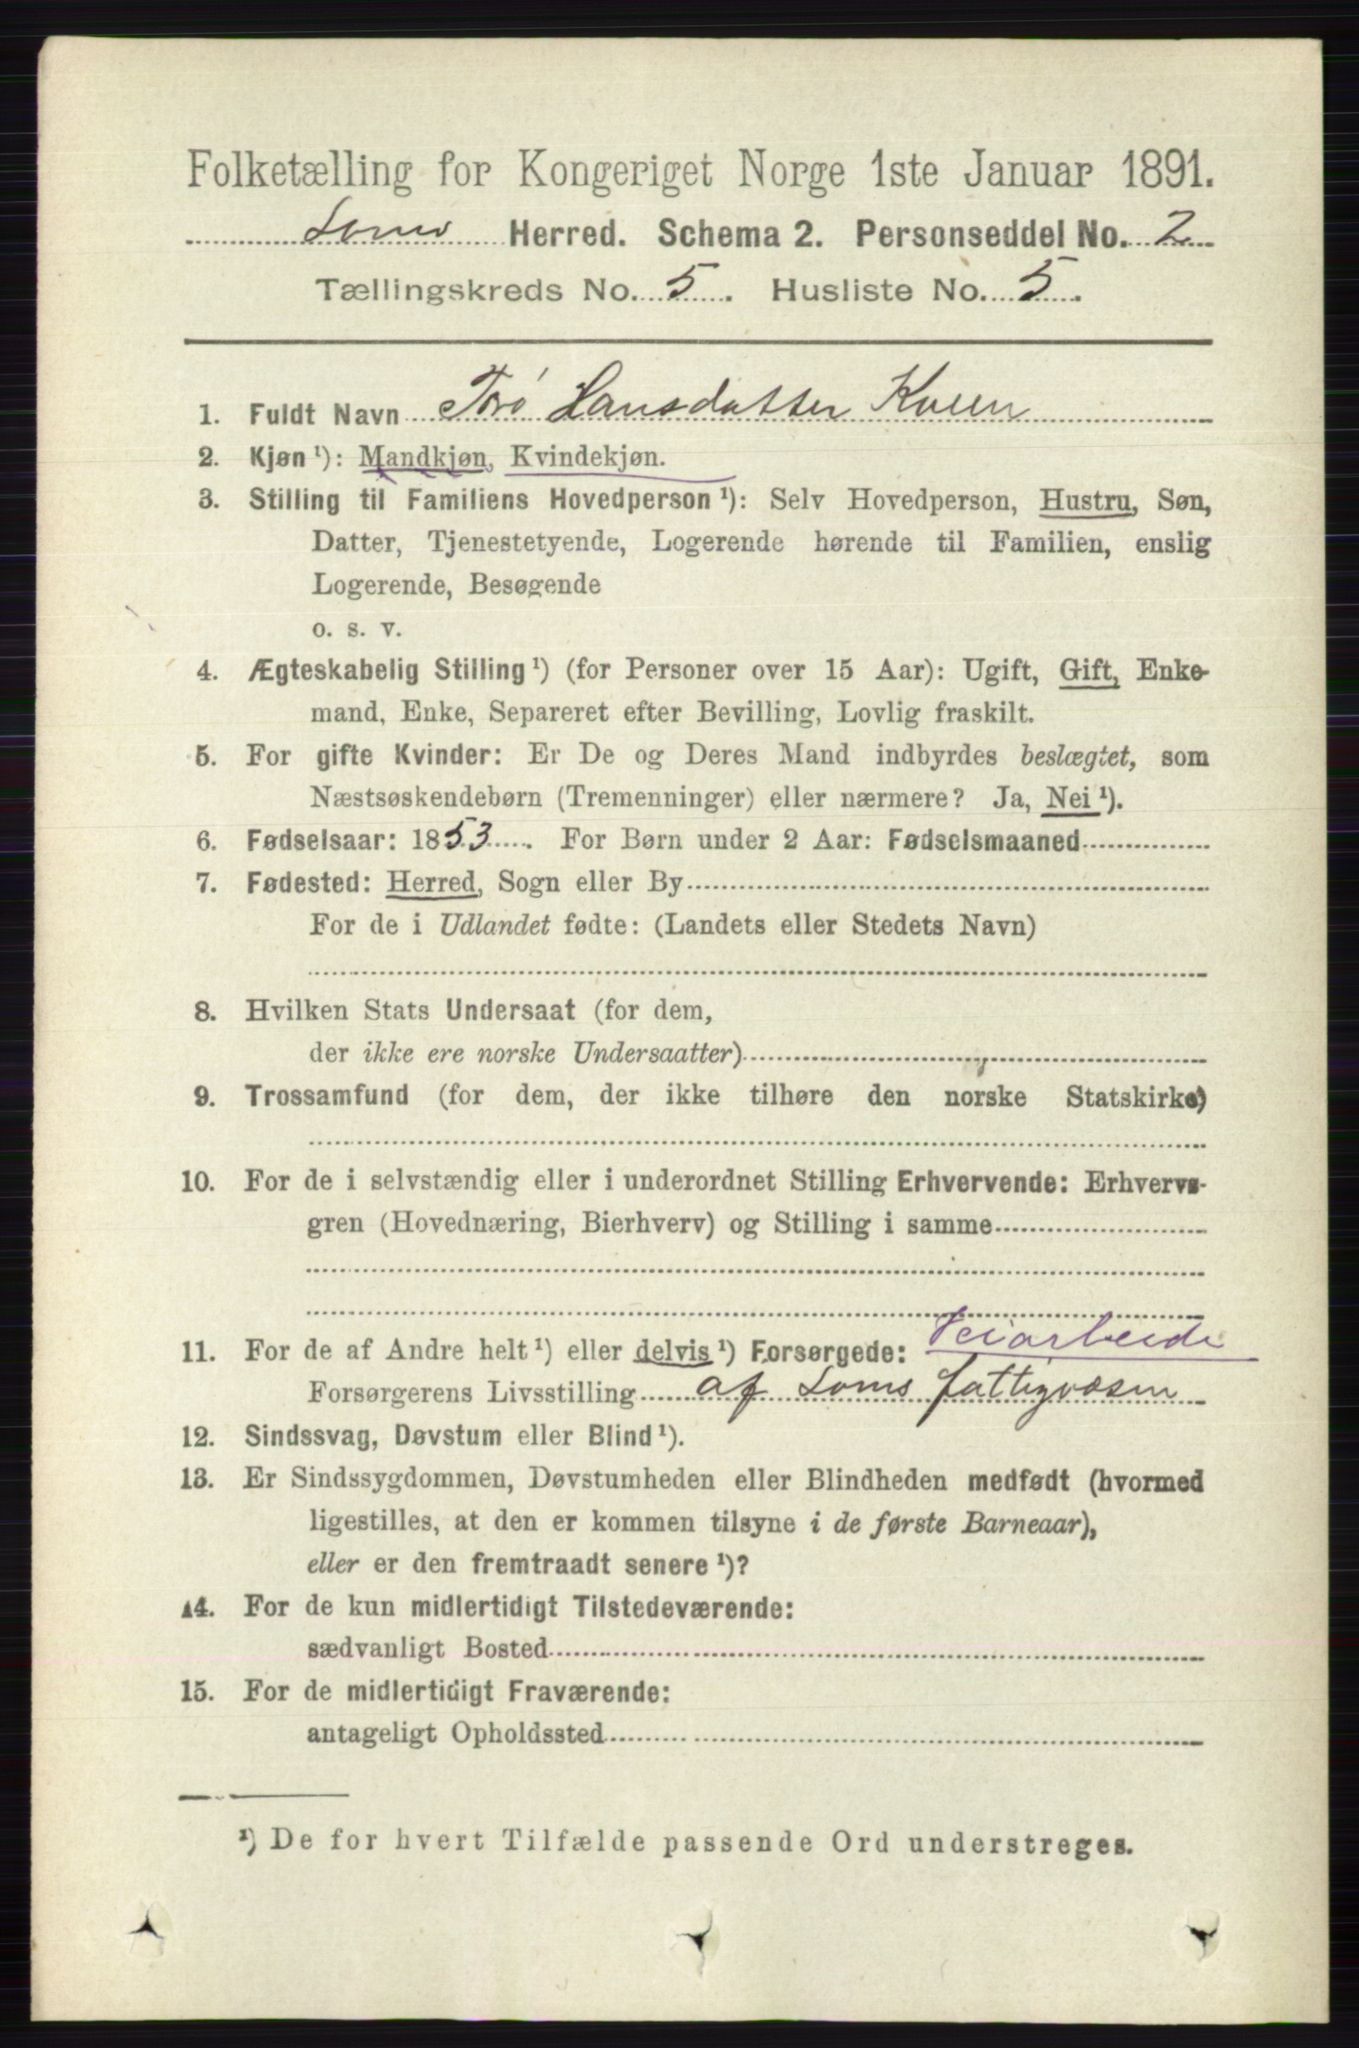 Folketælling for Kongeriget Norge 1ste Januar 1891.
Loms Herred. Schema 2. Personseddel No. 2
Tællingskreds No. 5. Husliste No. 5.
1. Fuldt Navn Tro Hansdatter Kveen
2. Kjøn ¹): Mandkjøn, Kvindekjøn.
3. Stilling til Familiens Hovedperson ¹): Selv Hovedperson, Hustru, Søn,
Datter, Tjenestetyende, Logerende hørende til Familien, enslig
Logerende, Besøgende
o. s. v.
4. Ægteskabelig Stilling ¹) (for Personer over 15 Aar): Ugift, Gift, Enke-
mand, Enke, Separeret efter Bevilling, Lovlig fraskilt.
5. For gifte Kvinder: Er De og Deres Mand indbyrdes beslægtet, som
Næstsøskendebørn (Tremenninger) eller nærmere? Ja, Nei ¹).
6. Fødselsaar: 1853. For Børn under 2 Aar: Fødselsmaaned
7. Fødested: Herred, Sogn eller By
For de i Udlandet fødte: (Landets eller Stedets Navn)
8. Hvilken Stats Undersaat (for dem,
der ikke ere norske Undersaatter)
9. Trossamfund (for dem, der ikke tilhøre den norske Statskirke)
10. For de i selvstændig eller i underordnet Stilling Erhvervende: Erhvervs-
gren (Hovednæring, Bierhverv) og Stilling i samme
Veiarbeide
11. For de af Andre helt ¹) eller delvis ¹) Forsørgede:
Forsørgerens Livsstilling af Loms fattigvæsen
12. Sindssvag, Døvstum eller Blind ¹).
13. Er Sindssygdommen, Døvstumheden eller Blindheden medfødt (hvormed
ligestilles, at den er kommen tilsyne i de første Barneaar),
eller er den fremtraadt senere ¹)?
14. For de kun midlertidigt Tilstedeværende:
sædvanligt Bosted
15. For de midlertidigt Fraværende:
antageligt Opholdssted
¹) De for hvert Tilfælde passende Ord understreges.